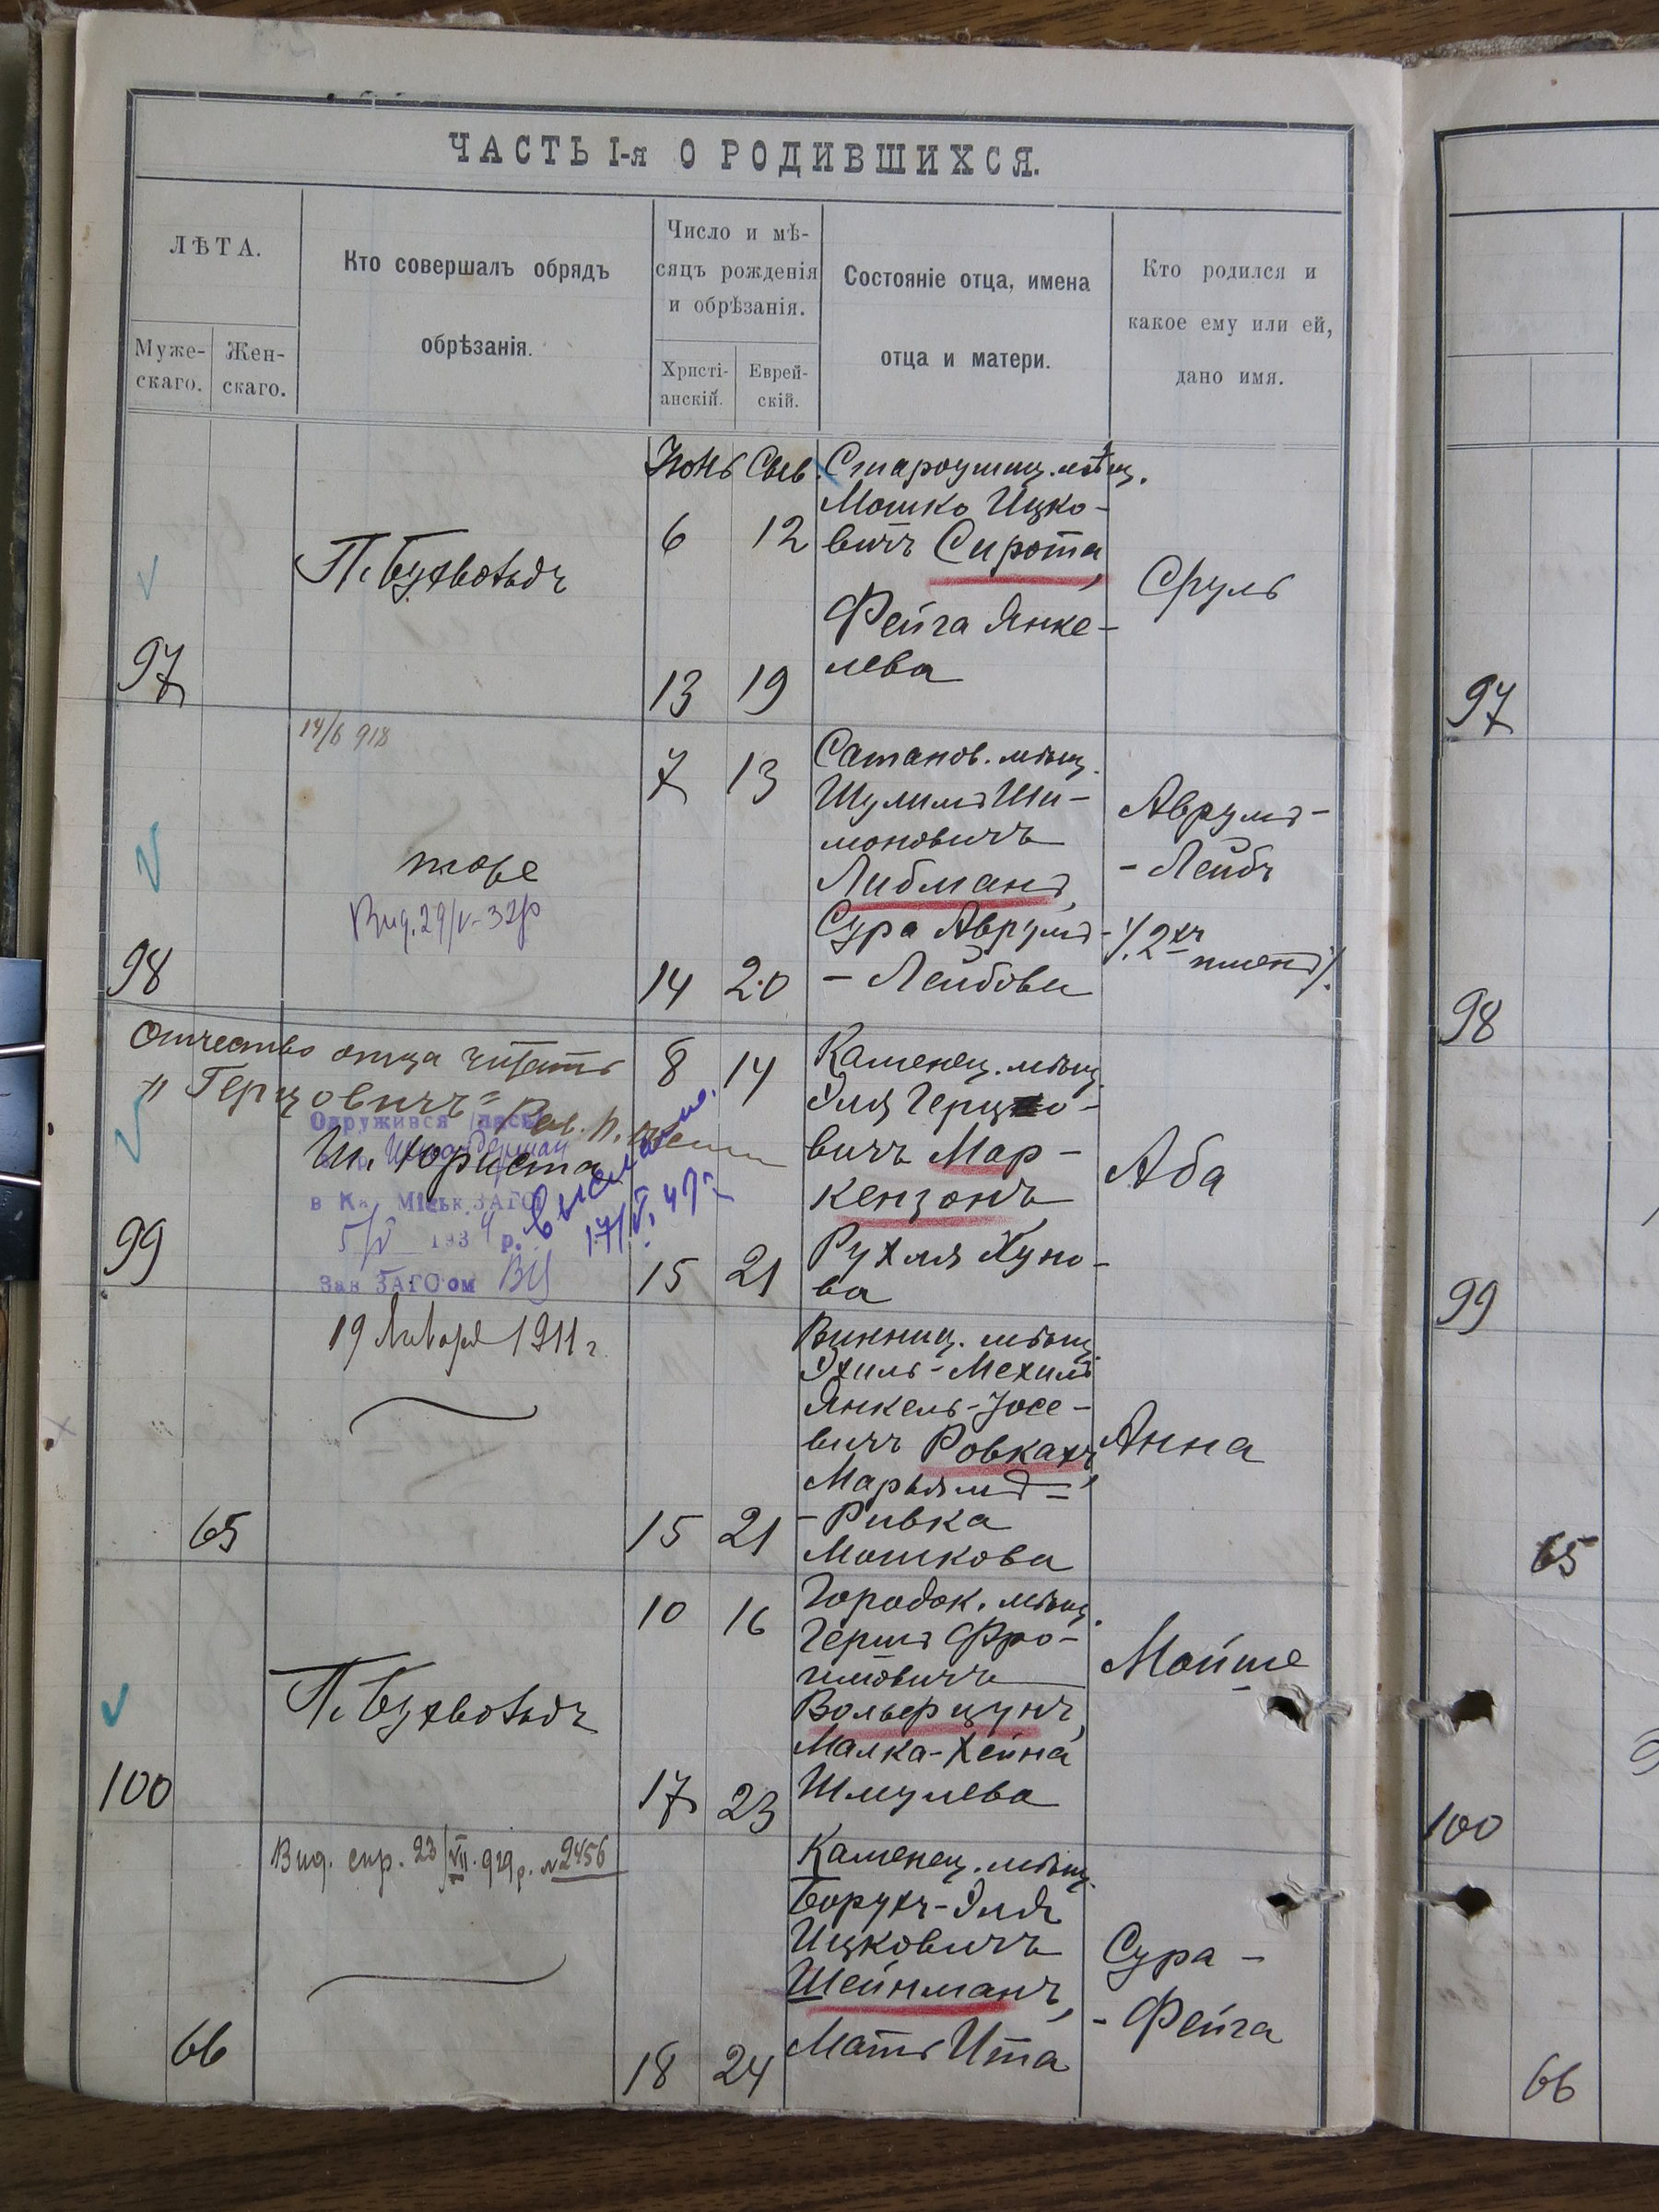 ЧАСТЬ I-я О РОДИВШИХСЯ.
ЛѢТА.
Муже-
скаго.
Жен-
скаго.
Кто совершалъ обрядъ
обрѣзанія.
Число и мѣ-
сяцъ рожденія
и обрѣзанія.
Христі-
анскій.
Еврей-
скій.
Состояніе отца, имена
отца и матери.
Кто родился и
какое ему или ей,
дано имя.
97
П. Бухвольдъ
Іюнь Сив.
6 12
13 19
Староушиц. мѣщ.
Мошко Ицко-
вичъ Сирота,
Фейга Янке-
лева
Сруль
97
98
14/6 918
тоже
Вид. 29/V-32р
7 13
14 20
Сатанов. мѣщ.
Шулимъ Ши-
моновичъ
Либманъ,
Сура Аврумъ-
- Лейбова
Аврумъ-
- Лейбъ
/. 2хъ
именъ /.
98
Отчество отца читать
"Герцовичъ"
99
Одружився
Ш. Юриста
в Міськ. ЗАГС
5/V 1934 р.
Зав ЗАГС'ом
17/VI 47 г.
8 14
15 21
Каменец. мѣщ.
Эля Герцо-
вичъ Мар-
кензонъ,
Рухля Хуно-
ва
Аба
99
65
19 Января 1911 г.
15 21
Винниц. мѣщ.
Эхиль-Мехилъ
Янкель-Іосе-
вичъ Ровкахъ,
Марьямъ=
- Ривка
Мошкова
Анна
65
100
П. Бухвольдъ
10 16
17 23
Городок. мѣщ.
Гершъ Фро-
имовичъ
Вольерцунъ,
Малка-Хейна
Шмулева
Мойше
100
66
Вид. спр. 23/VII. 929 р. № 2456
18 24
Каменец. мѣщ.
Борухъ-Эля
Ицковичъ
Шейнманъ,
Мать Ита
Сура -
- Фейга
66